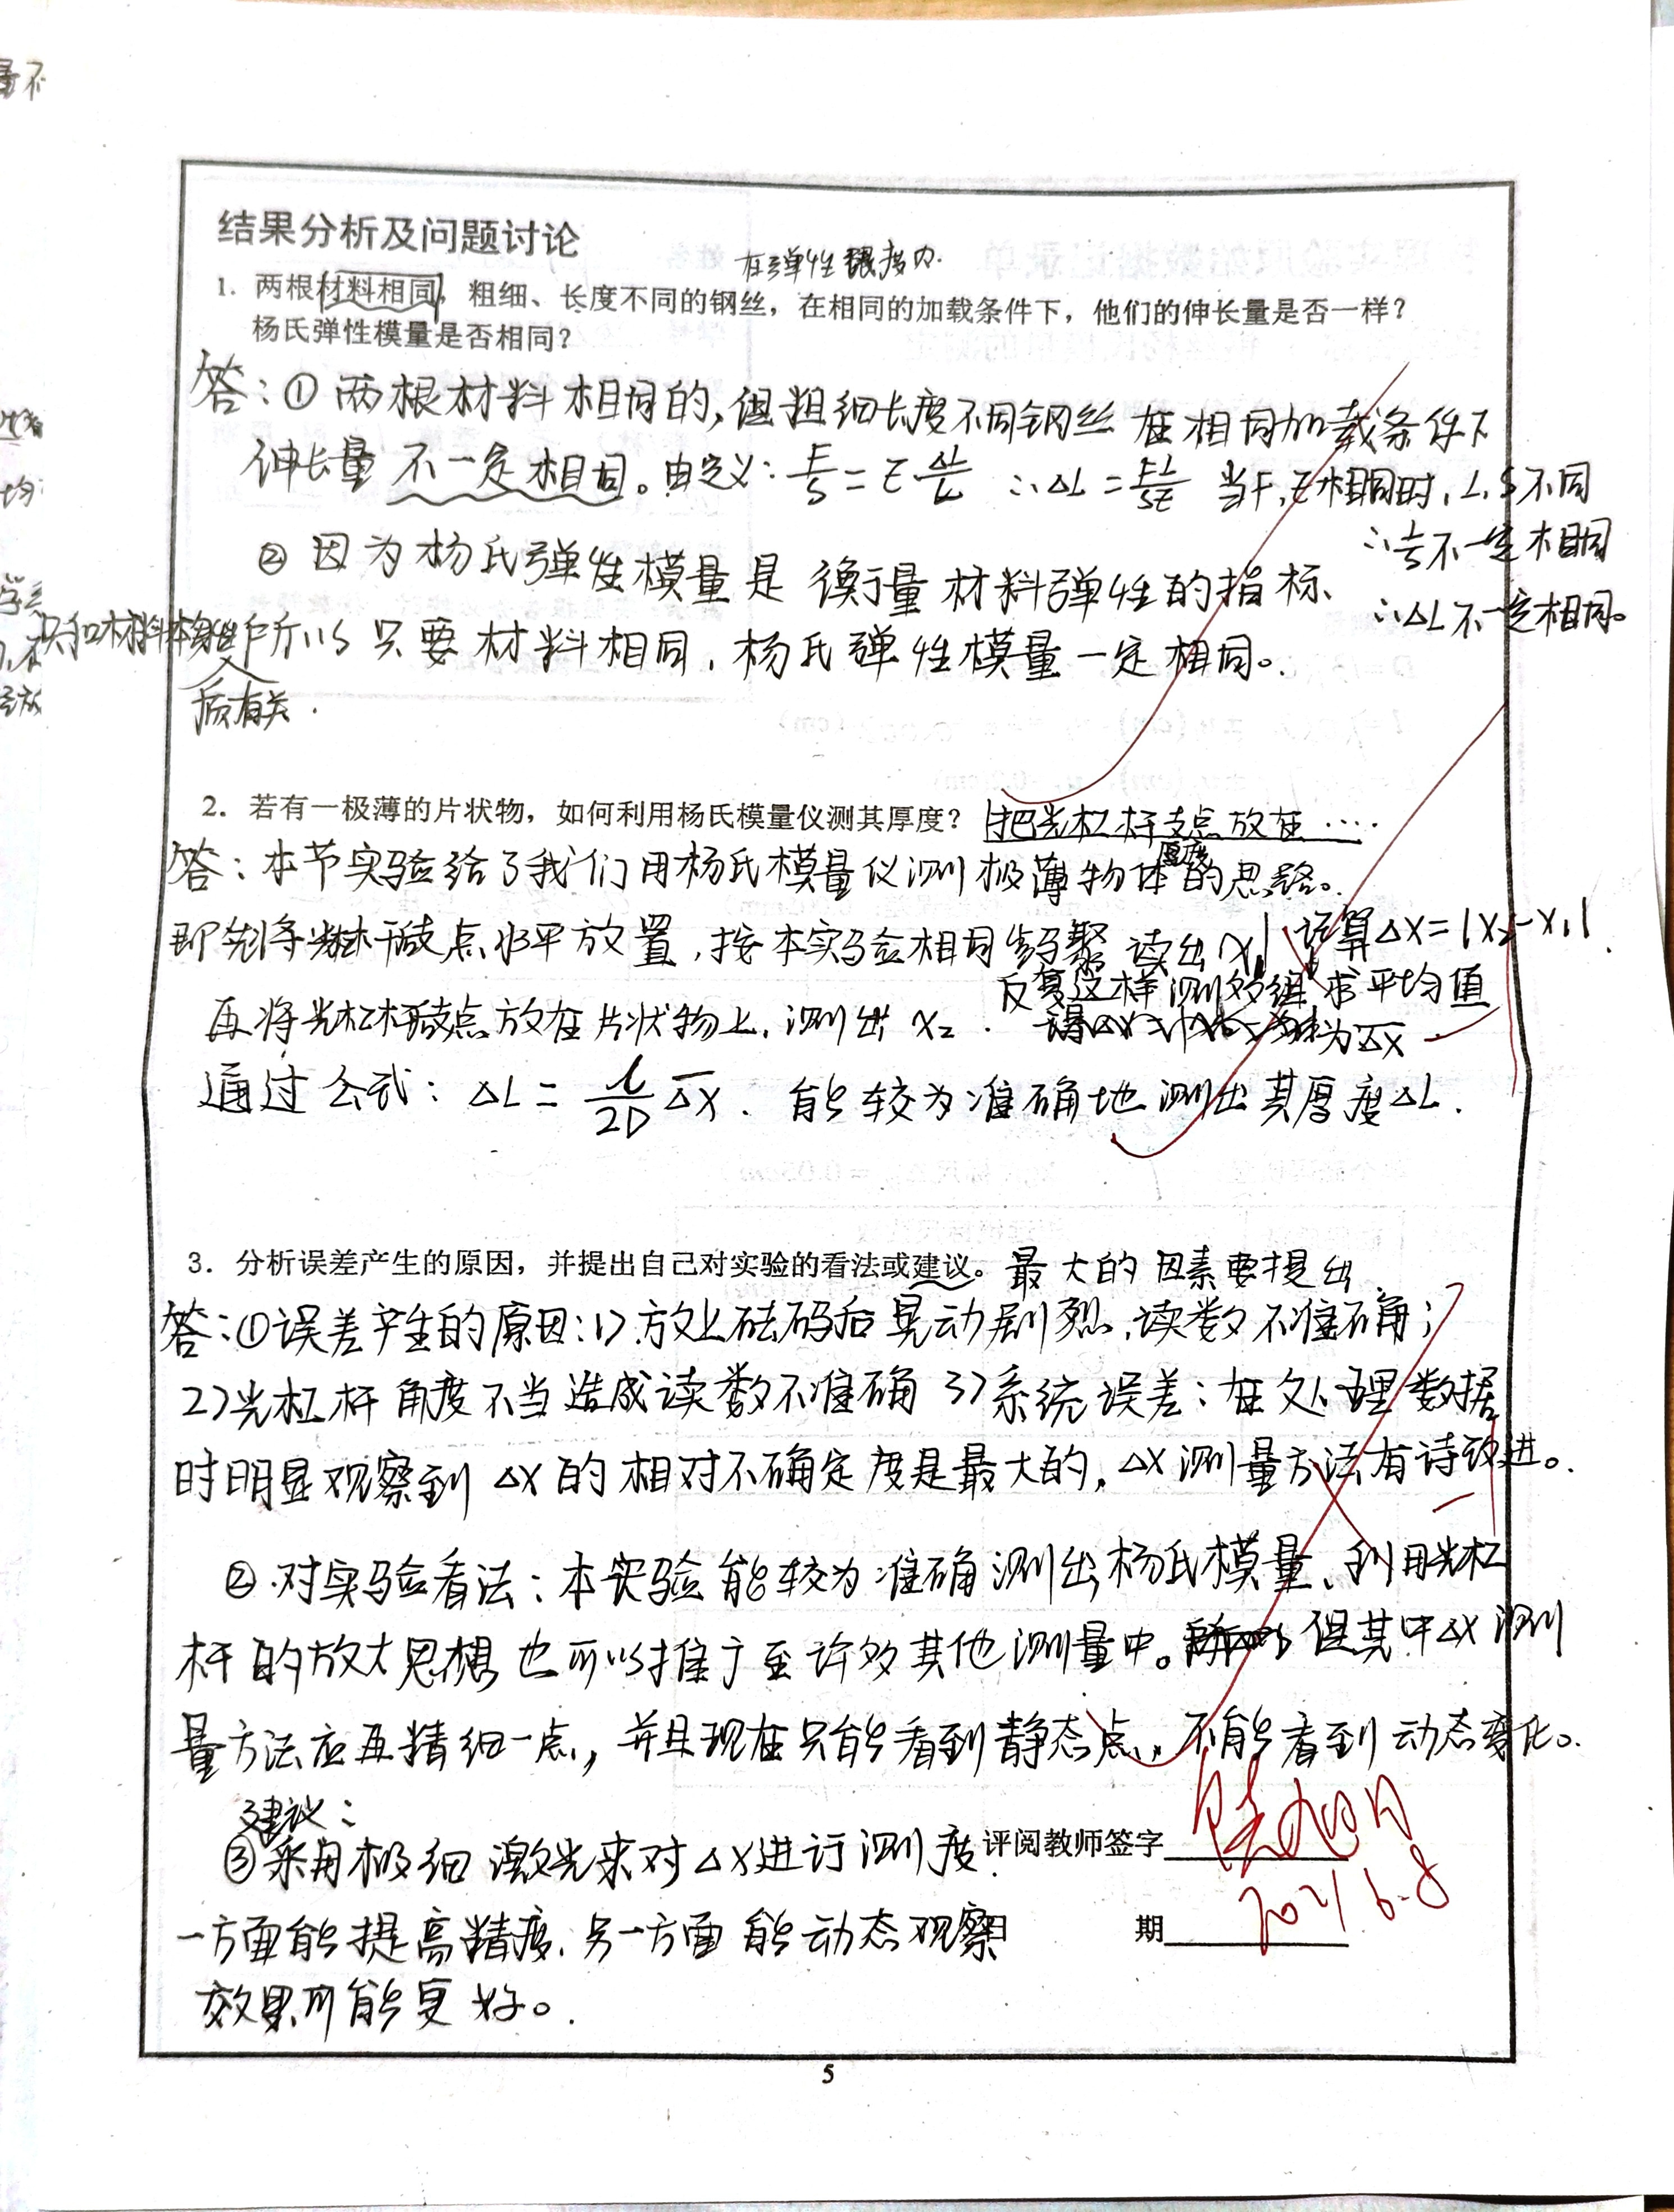 结果分析及问题讨论
在弹性限度内.
1. 两根材料相同，粗细、长度不同的钢丝，在相同的加载条件下，他们的伸长量是否一样？
杨氏弹性模量是否相同？
答：① 两根材料相同的，但粗细长度不同钢丝 在相同加载条件下
伸长量 不一定相同。由定义：F/S = E ΔL/L ∴ΔL = FL/SE 当F,E相同时, L,S不同
∴L/S不一定相同
∴ΔL不一定相同。
② 因为杨氏弹性模量是衡量材料弹性的指标、
只和材料本身性质有关. 所以只要材料相同，杨氏弹性模量一定相同。
2. 若有一极薄的片状物，如何利用杨氏模量仪测其厚度？ 把光杠杆支点放在……
答：本节实验给了我们用杨氏模量仪测极薄物体厚度的思路。
即先将光杠杆支点水平放置，按本实验相同步骤 读出x₁ 计算Δx=|x₂-x₁|.
再将光杠杆支点放在片状物上，测出 x₂. 反复这样测多组,求平均值
为Δx
通过公式：ΔL = l/2D Δx. 能较为准确地测出其厚度ΔL.
3. 分析误差产生的原因，并提出自己对实验的看法或建议。 最大的因素要提出.
答：①误差产生的原因：1>.放上砝码后晃动剧烈.读数不准确；
2>光杠杆角度不当造成读数不准确 3>系统误差：在处理数据
时明显观察到 Δx的相对不确定度是最大的，Δx测量方法有待改进。
②.对实验看法：本实验能较为准确测出杨氏模量、利用光杠
杆的放大思想也可以推广至许多其他测量中。但其中Δx测
量方法应再精细一点，并且现在只能看到静态点，不能看到动态变化。
建议：
③采用极细激光来对Δx进行测度. 评阅教师签字
一方面能提高精度、另一方面能动态观察 日 期 2021 6-8
效果可能更好。
5